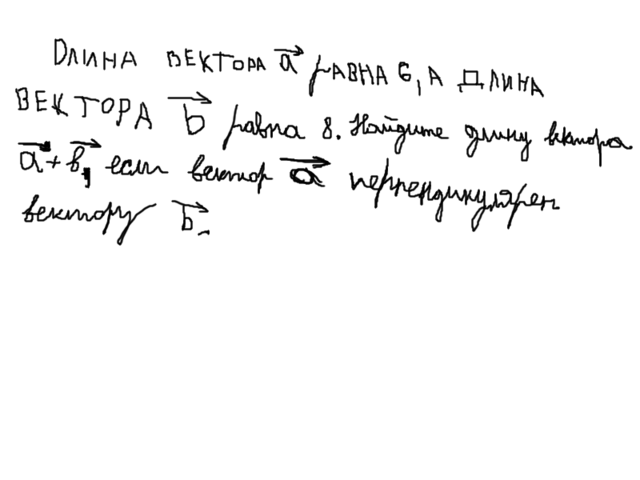 Длина вектора a⃗ равна 6, а длина
вектора b⃗ равна 8. Найдите длину вектора
a⃗ + b⃗, если вектор a⃗ перпендикулярен
вектору b⃗.